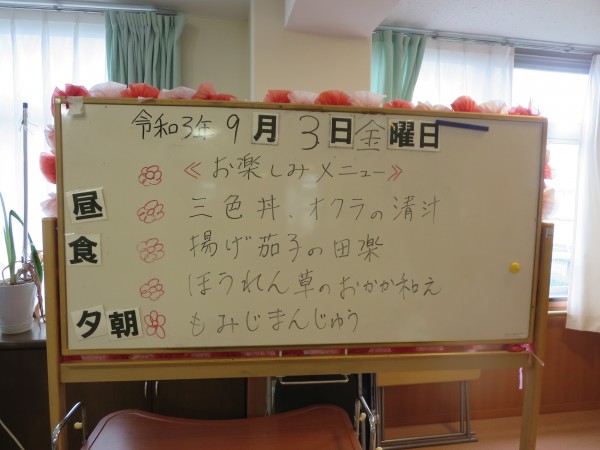 令和3年 9月 3日 金曜日
≪お楽しみメニュー≫
昼食
三色丼、オクラの清汁
揚げ茄子の田楽
ほうれん草のおかか和え
夕朝
もみじまんじゅう